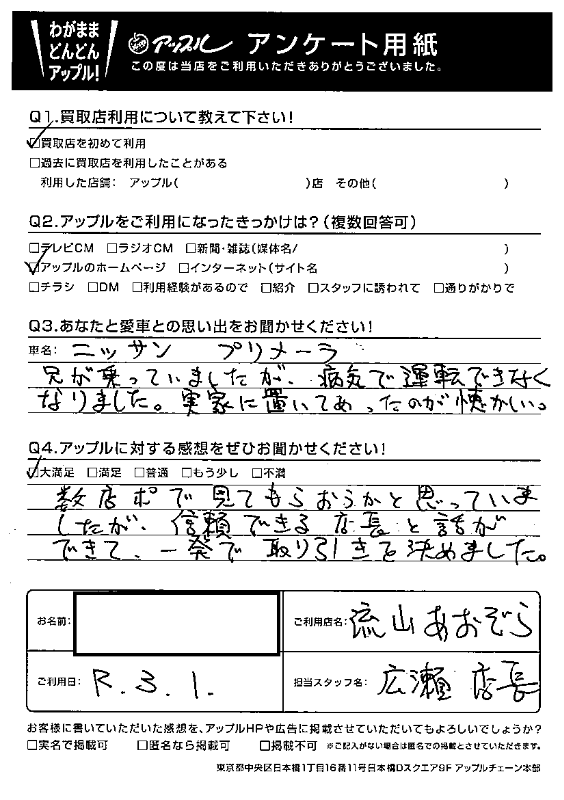 わがまま
どんどん
アップル!
アップル アンケート用紙
この度は当店をご利用いただきありがとうございました。
Q1.買取店利用について教えて下さい!
☑買取店を初めて利用
□過去に買取店を利用したことがある
利用した店舗: アップル( )店 その他( )
Q2.アップルをご利用になったきっかけは?(複数回答可)
□テレビCM □ラジオCM □新聞・雑誌(媒体名/ )
☑アップルのホームページ □インターネット(サイト名 )
□チラシ □DM □利用経験があるので □紹介 □スタッフに誘われて □通りがかりで
Q3.あなたと愛車との思い出をお聞かせください!
車名: ニッサン プリメーラ
兄が乗っていましたが、病気で運転できなく
なりました。実家に置いてあったのが懐かしい。
Q4.アップルに対する感想をぜひお聞かせください!
☑大満足 □満足 □普通 □もう少し □不満
数店ポで見てもらおうかと思っていま
したが、信頼できる店長と話が
できて、一発で取り引きを決めました。
お名前:
ご利用店名: 流山あおぞら
ご利用日: R.3.1.
担当スタッフ名: 広瀬 店長
お客様に書いていただいた感想を、アップルHPや広告に掲載させていただいてもよろしいでしょうか?
□実名で掲載可 □匿名なら掲載可 □掲載不可 ※ご記入がない場合は匿名での掲載とさせていただきます。
東京都中央区日本橋1丁目16番11号日本橋Dスクエア9F アップルチェーン本部